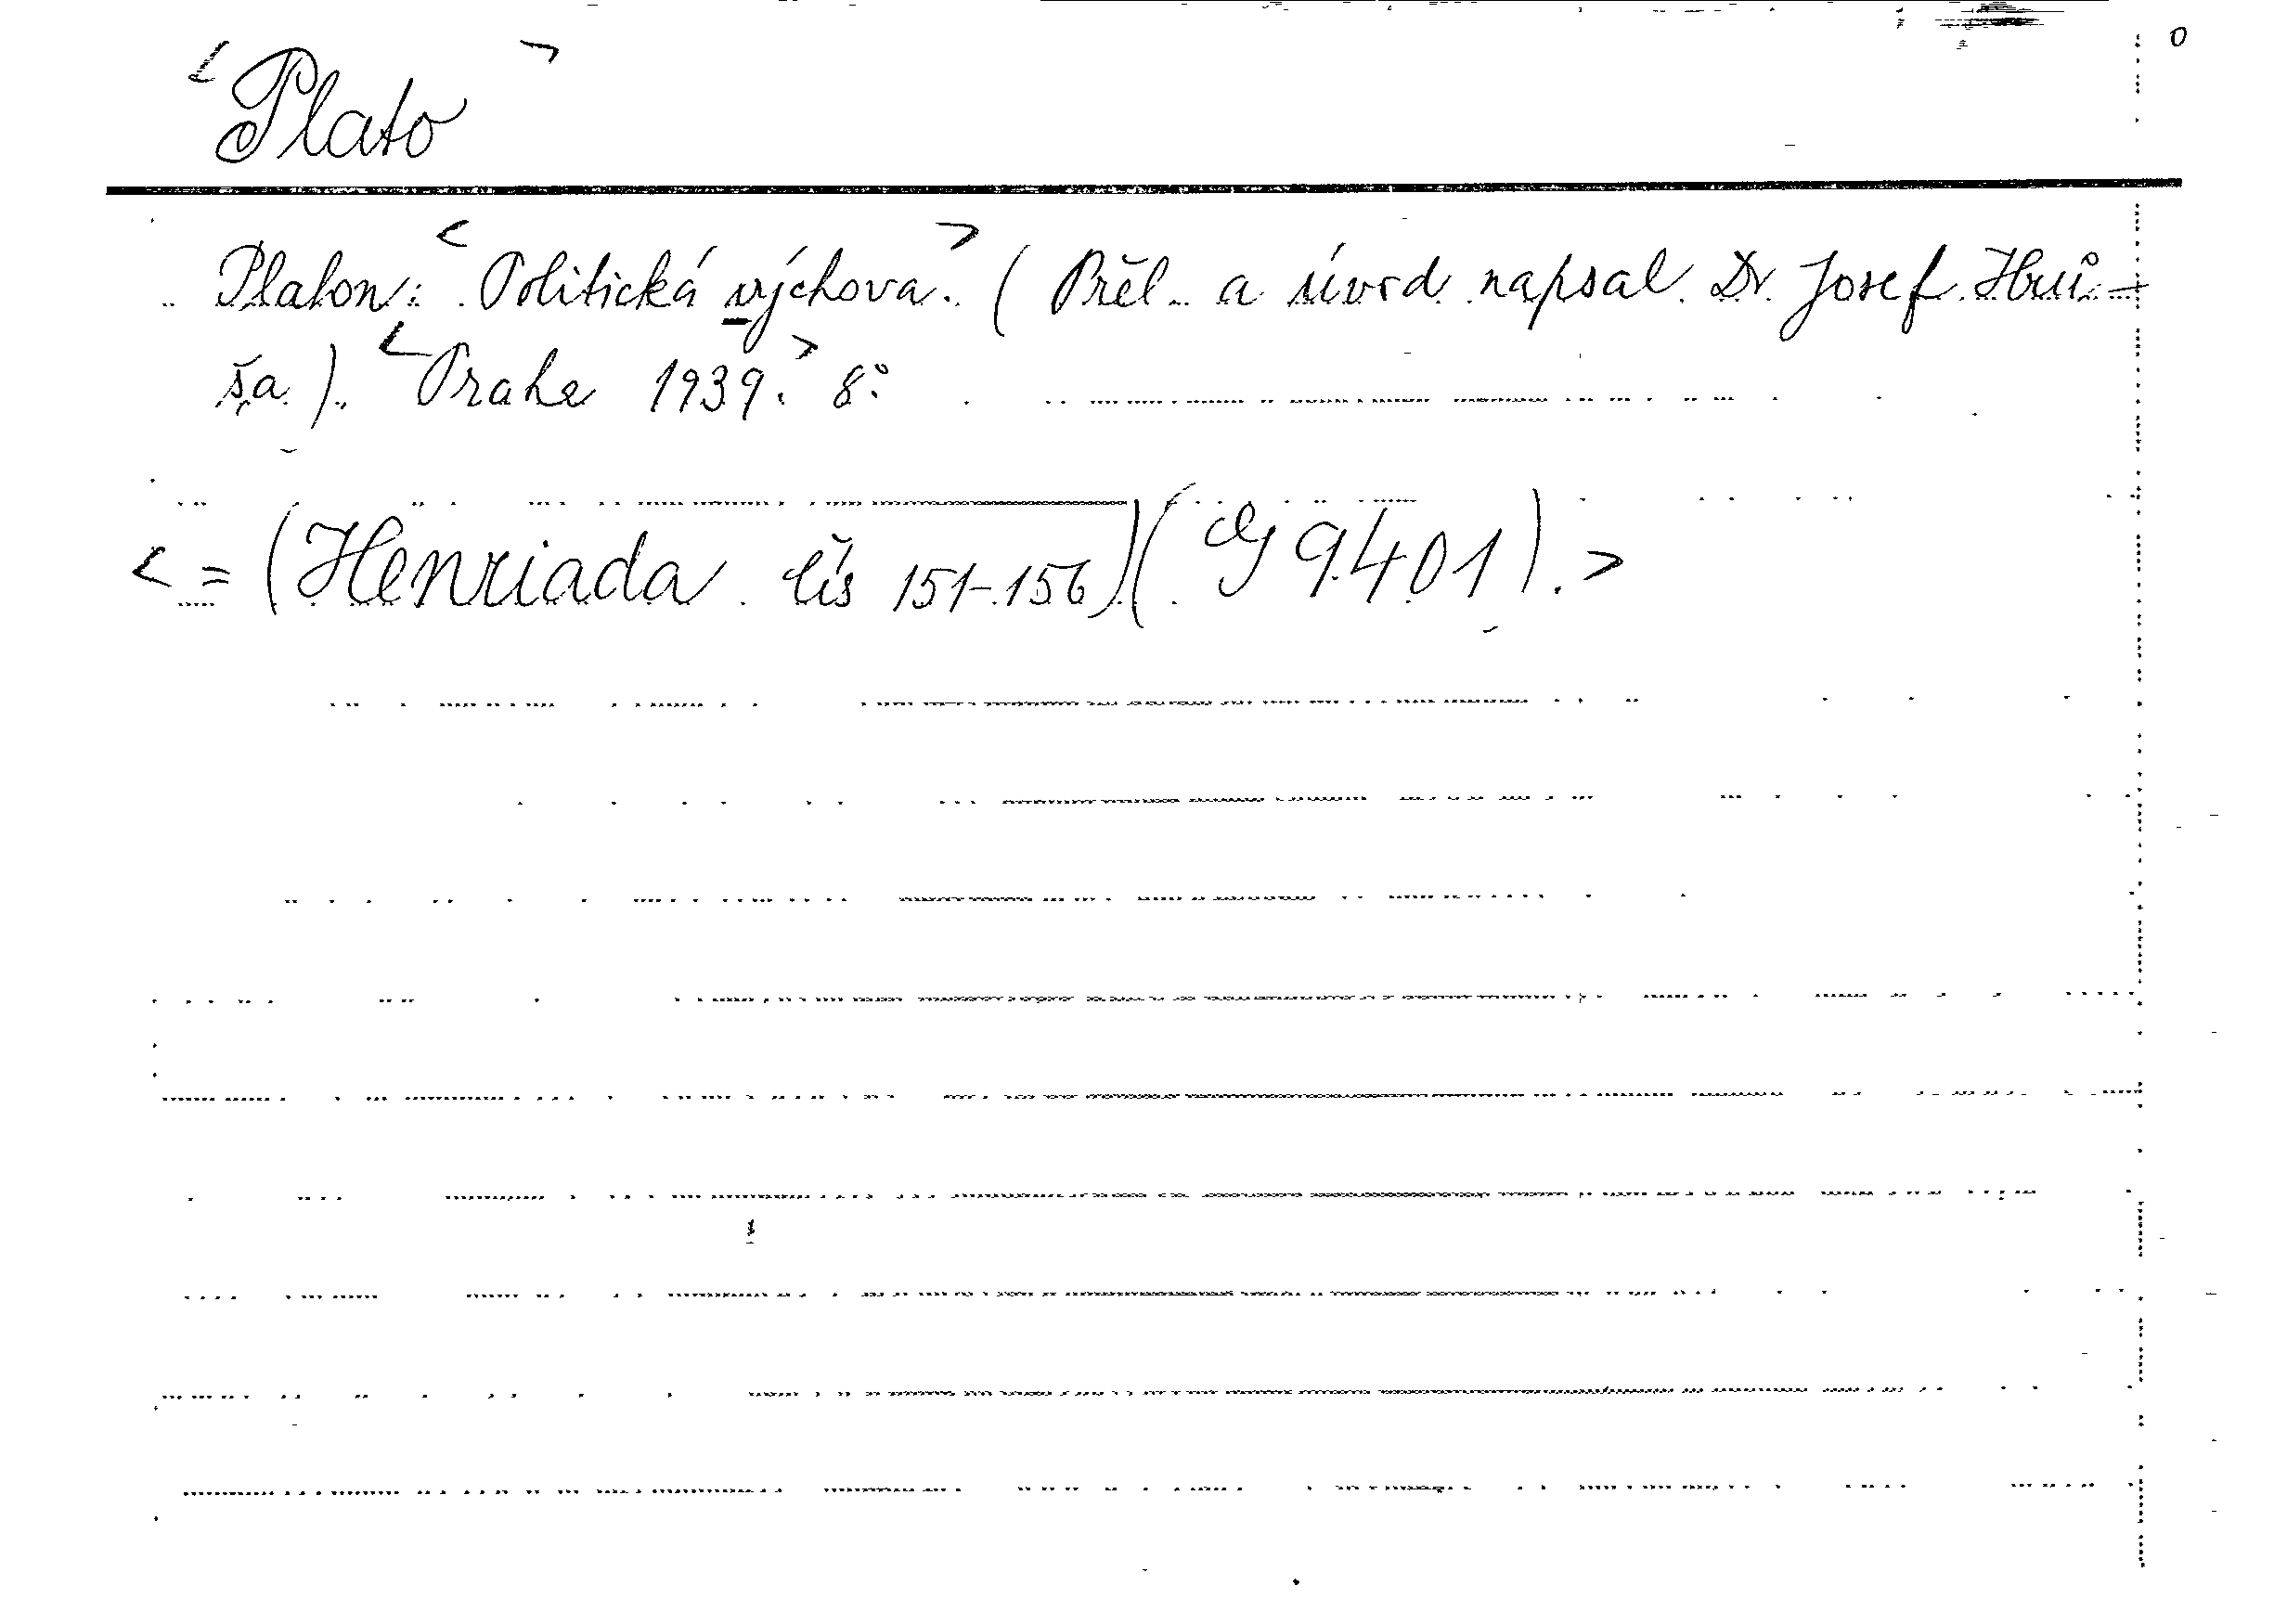 <Plato>
Platon: <Politická výchova.> (Přel. a úvod napsal Dr. Josef Hrů-
ša). <Praha 1939.> 8°.
<= (Henriada čís 151-156) ( 9401).>